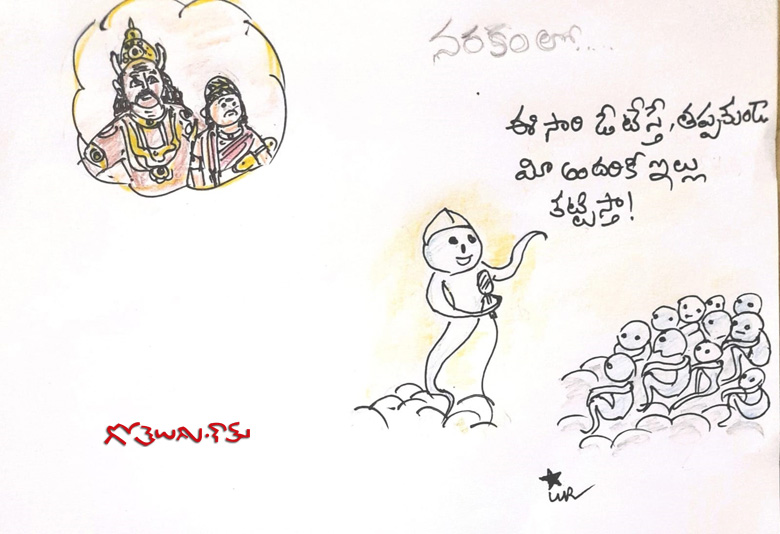 నరకంలో.....
ఈ సారి ఓటేస్తే, తప్పకుండా
మీ అందరికీ ఇల్లు
కట్టిస్తా!
గోతెలుగు.కామ్